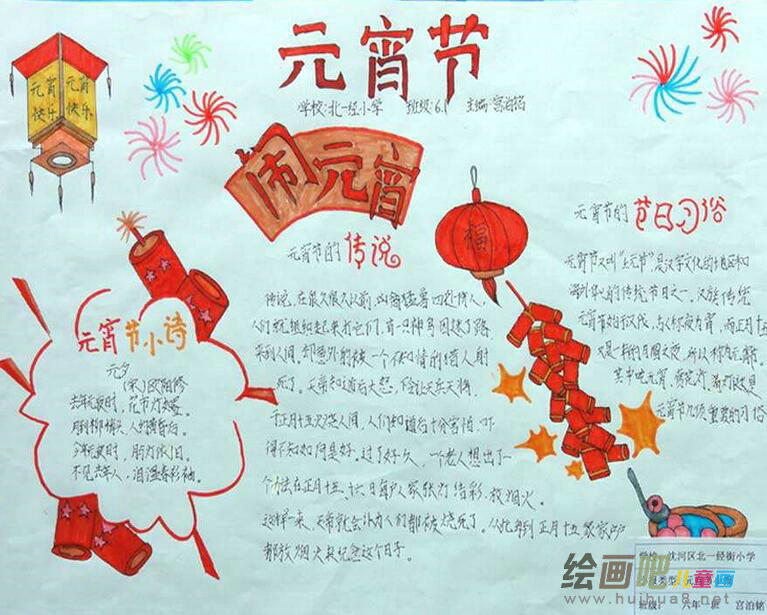 元宵节
学校:北一经小学 班级:6.1 主编:宫泊铭
元宵快乐
元宵快乐
闹元宵
元宵节的传说
传说,在很久很久以前,凶禽猛兽四处伤人,
人们就组织起来打它们,有一只神鸟因迷了路
来到人间,却意外的被一个不知情的猎人射
死了。天帝知道后大怒,下令让天兵天将
于正月十五火烧人间,人们知道后十分害怕,吓
得不知如何是好。过了好久,一个老人想出了一
个办法在正月十五、十六日每户人家张灯结彩,放烟火。
这样一来,天帝就会以为人们都被烧死了,从此每到正月十五家家户户
都放烟火来纪念这个日子。
福
元宵节的节日习俗
元宵节又叫"上元节"是汉字文化的地区和
海外华人的传统节日之一,汉族传统
元宵节始于汉代,古人称夜为宵,而正月十五
又是一年的月圆之夜,所以称为元宵。
其中吃元宵,赏花灯,
元宵节几项重要的习俗
元宵节小诗
元夕
(宋)欧阳修
去年元夜时,花市灯如昼。
月到柳梢头,人约黄昏后。
今年元夜时,月与灯依旧。
不见去年人,泪湿春衫袖。
学校:沈河区北一经街小学
类型:元宵节小报
班级:六年一班 宫泊铭
绘画吧儿童画
www.huihua8.net